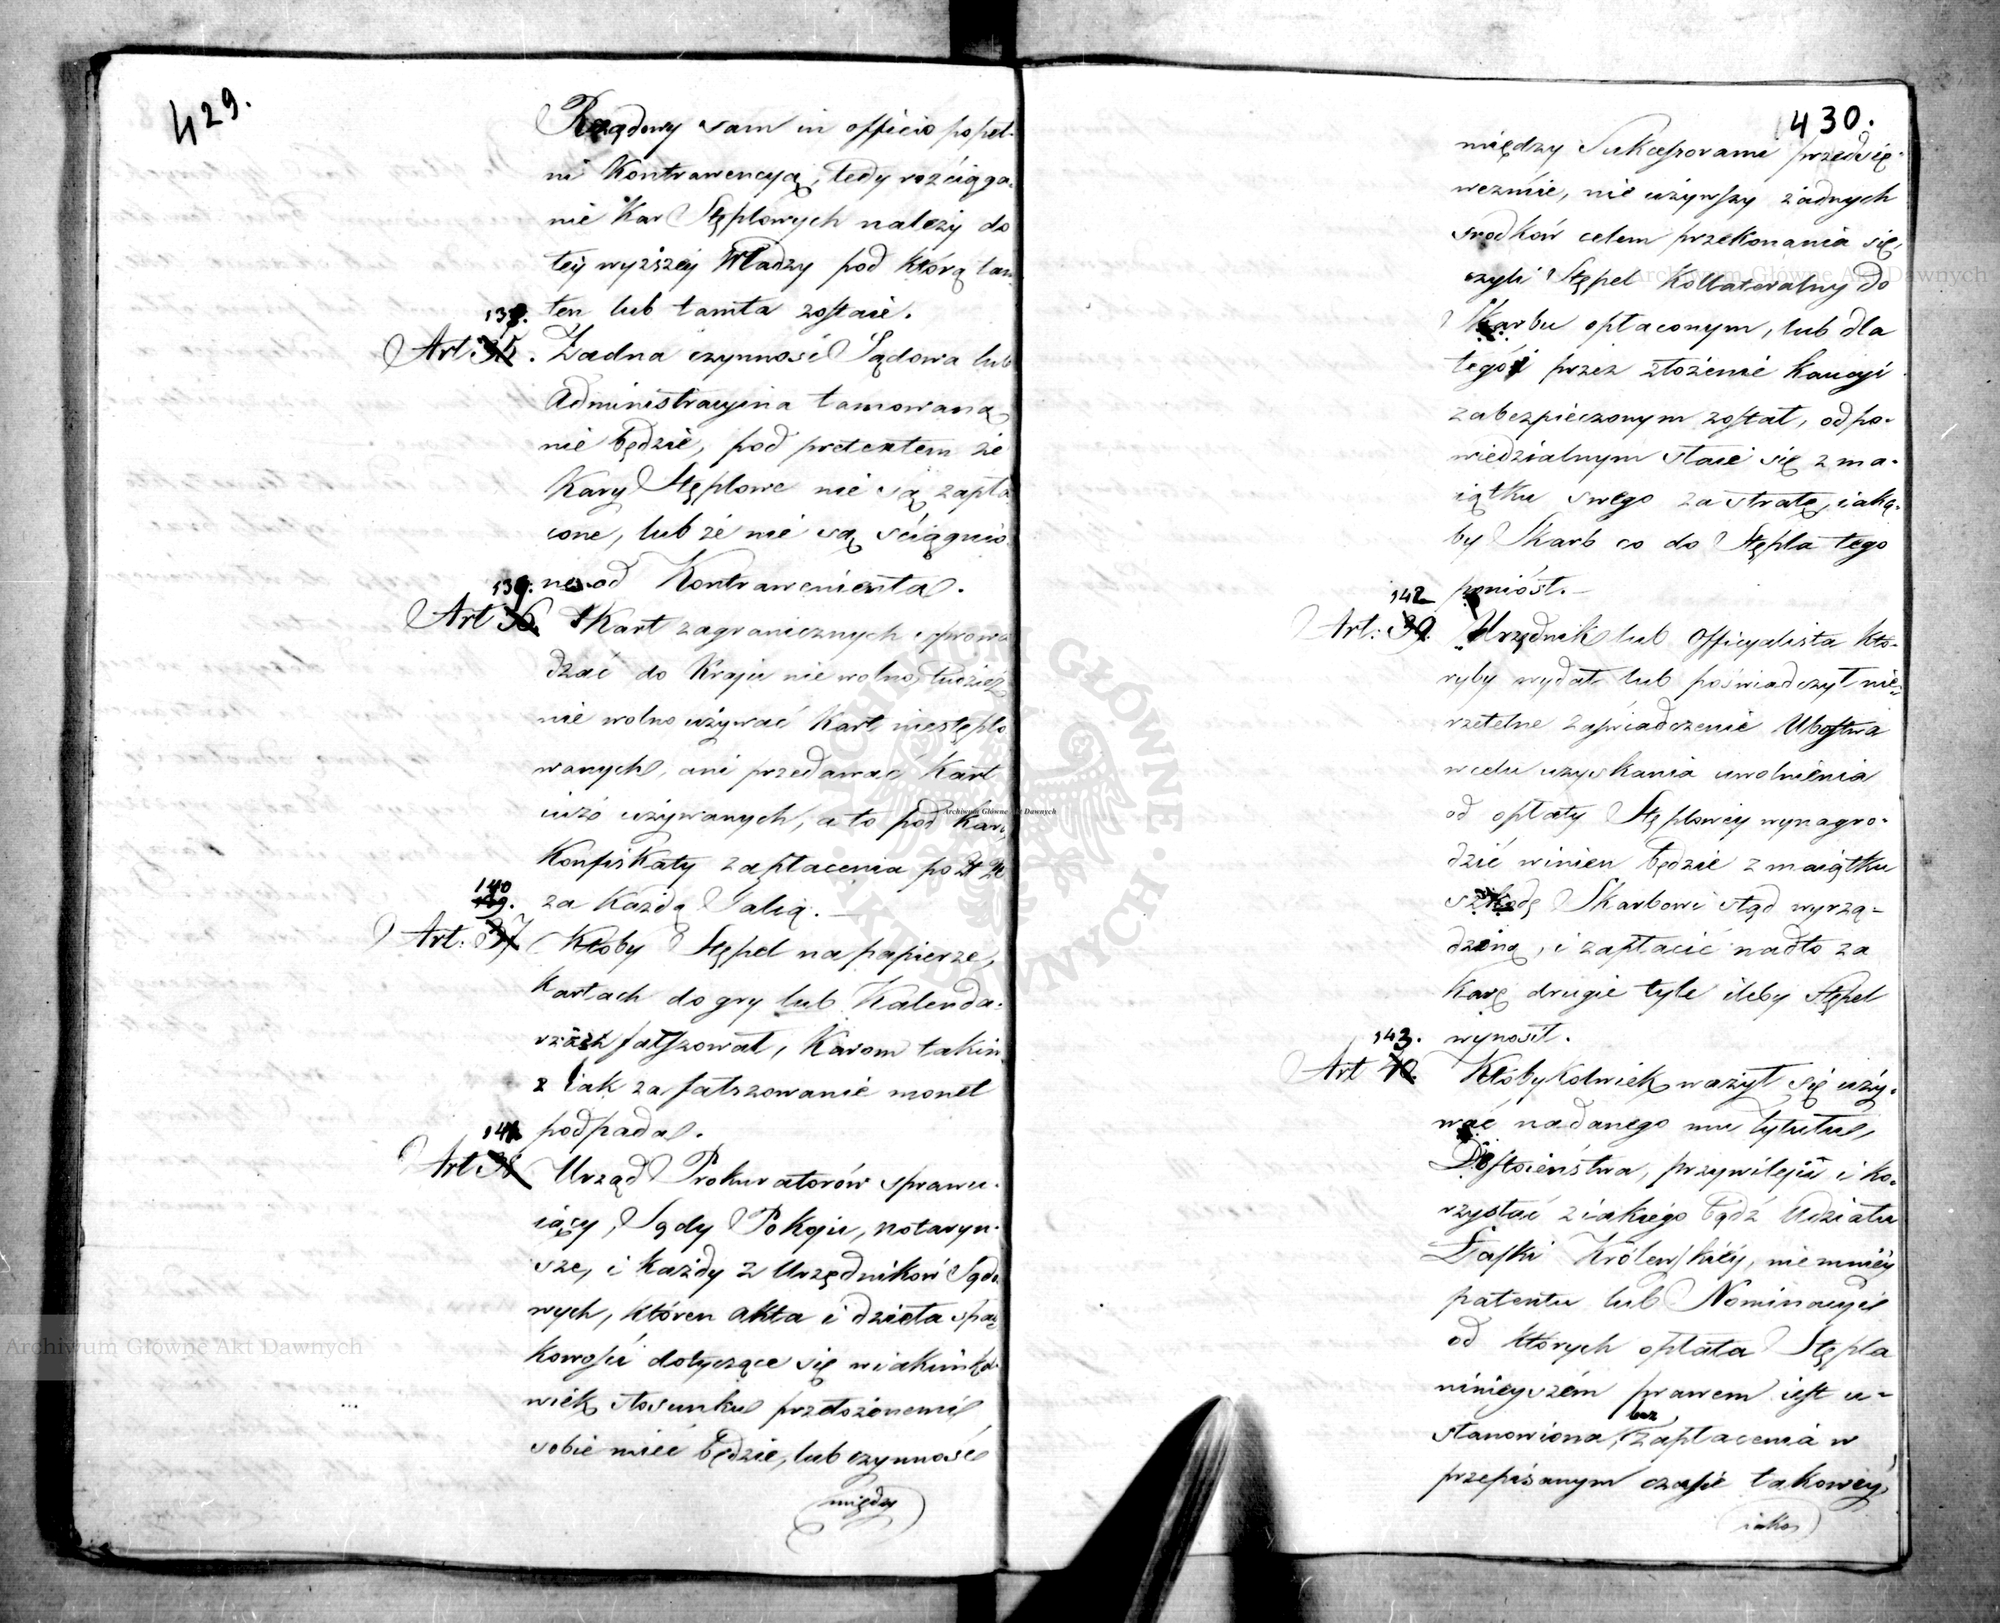 429.
Rządowy sam in officio popeł-
ni Kontrawencyą, tedy rozciąga-
nie Kar Stęplowych należy do
tey wyższey Władzy pod którą tam
ten lub tamta zostaie.
138.
Art 35. Żadna czynność Sądowa lub
Administracyina tamowaną
nie będzie, pod pretextem że
Kary Stęplowe nie są zapła
cone, lub że nie są ściągnio
ne od Kontrawenienta.
139.
Art 36. Kart zagranicznych sprowa
dzać do Kraju nie wolno, tudzież
nie wolno używać Kart niestęplo
wanych, ani przedawać Kart
iuż używanych, a to pod karą
Konfiskaty zapłacenia po
za Każdą Talią. —
140
139.
Art. 37 Ktoby Stępel na papierze,
Kartach do gry lub Kalenda-
rzach fałszował, Karom takim
iak za fałszowanie monet
podpada.
141
Art 38 Urząd Prokuratorów sprawu-
iący, Sądy Pokoju, notaryu-
sze, i każdy z Urzędników Sądo
wych, któren akta i dzieła spad
kowości dotyczące się w iakimkol-
wiek stosunku przełożonemi
sobie mieć będzie, lub czynność
między
430.
między Sukcessorami przedsię-
weźmie, nie używszy żadnych
srodków celem przekonania się,
czyli Stępel Kollateralny do
Skarbu opłaconym, lub dla
tegoż przez złożenie Kaucyi
zabezpieczonym został, odpo-
wiedzialnym staie się z ma-
iątku swego za stratę, iaką-
by Skarb co do Stępla tego
poniósł. —
142
Art: 39. Urzędnik lub Officyalista któ-
ryby wydał lub poświadczył nie-
rzetelne zaświadczenie Ubóstwa
w celu uzyskania uwolnienia
od opłaty Stęplowey wynagro-
dzić winien będzie z maiątku
szkodę Skarbowi stąd wyrzą-
dzoną, i zapłacić nadto za
Karę drugie tyle ileby Stępel
wynosił.
143.
Art 40. Ktobykolwiek ważył się uży-
wać nadanego mu tytułu,
Dostoieństwa, przywileju i ko-
rzystać z iakiego bądź Udziału
Łaski Królewskiéy, niemniéy
patentu lub Nominacyi
od których opłata Stępla
ninieyszém prawem iest u-
stanowiona, bez zapłacenia w
przepisanym czasie takowéy,
iako
Archiwum Główne Akt Dawnych
Archiwum Główne Akt Dawnych
Archiwum Główne Akt Dawnych
ARCHIWUM GŁÓWNE AKT DAWNYCH